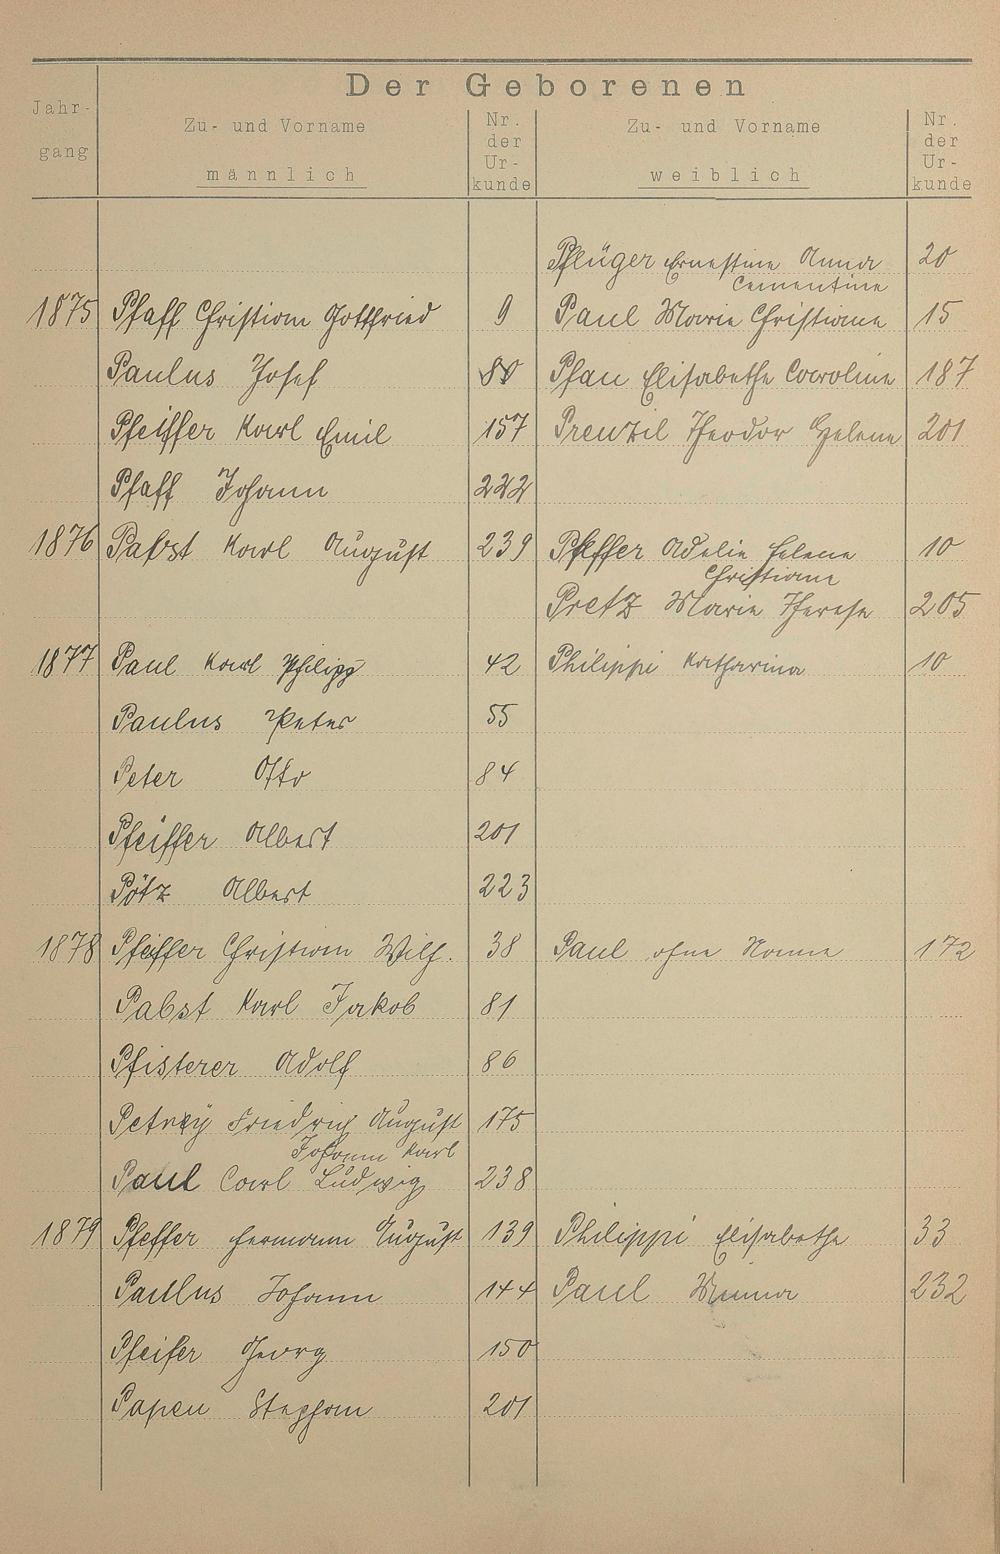 Der Geborenen
Jahr-
gang
Zu- und Vorname
männlich
Nr.
der
Ur-
kunde
Zu- und Vorname
weiblich
Nr.
der
Ur-
kunde
Pflüger Ernestine Anna 20
Cementine
1875 Pfaff Christian Gottfried 9 Paul Marie Christiane 15
Paulus Josef 80 Pfau Elisabethe Caroline 187
Pfeiffer Karl Emil 157 Theodor Helene 201
Pfaff Johann 222
1876 Pabst Karl August 239 Pfeffer Adelie Helene 10
Christiane
Pretz Marie Therese 205
1877 Paul Karl Philipp 42 Philippi Katharina 10
Paulus Peter 55
Peter Otto 84
Pfeiffer Albert 201
Pötz Albert 223
1878 Pfeiffer Christian Wilh. 38 Paul ohne Name 172
Pabst Karl Jakob 81
Pfisterer Adolf 86
Petry Friedrich August 175
Johann Karl
Paul Carl Ludwig 238
1879 Pfeffer Hermann August 139 Philippi Elisabethe 33
Paulus Johann 144 Paul Minna 232
Pfeifer Georg 150
Papen Stephan 201